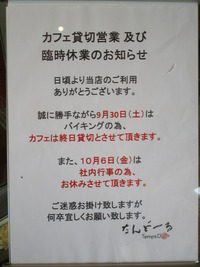 カフェ貸切営業 及び
臨時休業のお知らせ
日頃より当店のご利用
ありがとうございます。
誠に勝手ながら9月30日（土）は
バイキングの為、
カフェは終日貸切とさせて頂きます。
また、１０月６日（金）は
社内行事の為、
お休みさせて頂きます。
ご迷惑お掛け致しますが
何卒宜しくお願い致します。
たんどーる